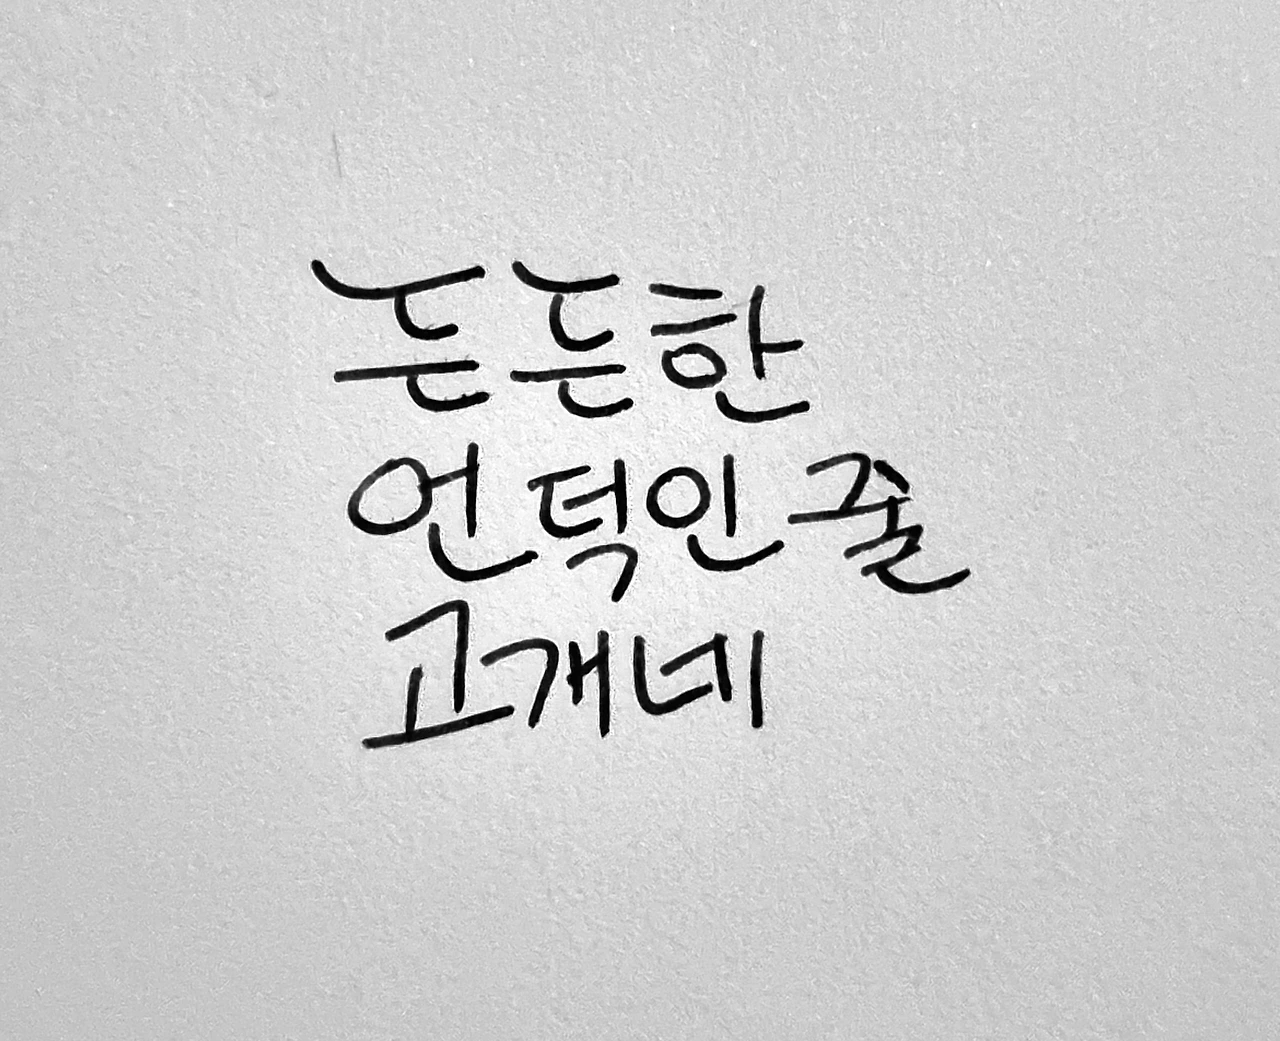 든든한
언덕인 줄
고개네